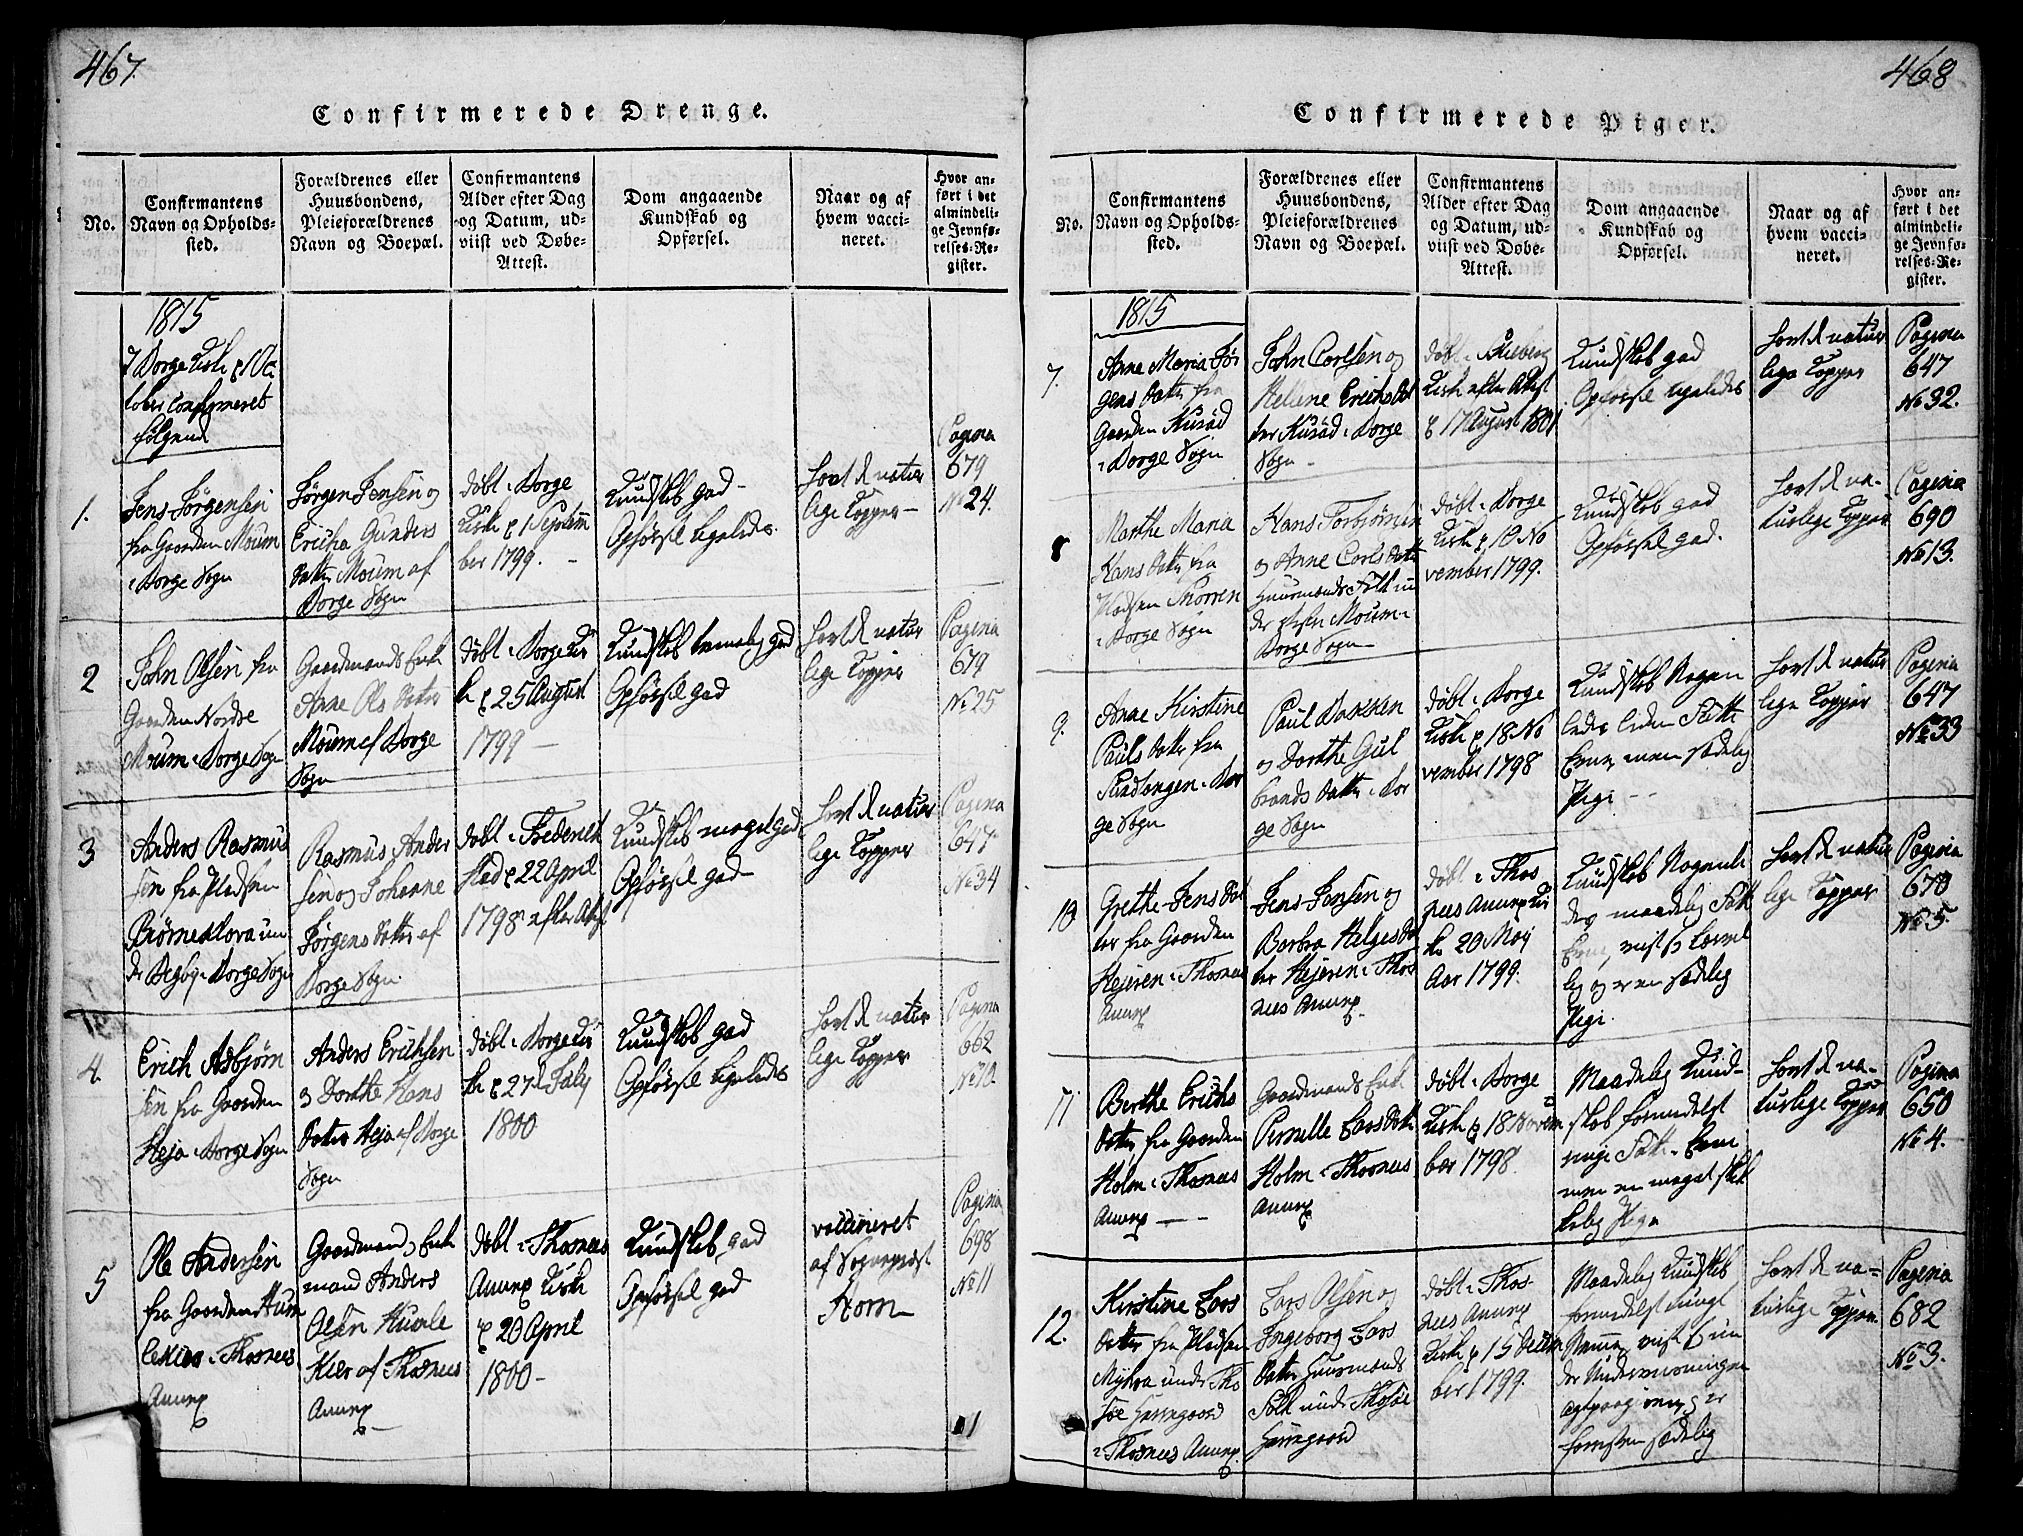 467.
Confirmerede Drenge.
No.
Confirmantens
Navn og Opholds-
sted.
Forældrenes eller
Huusbondens,
Pleieforældrenes
Navn og Boepæl.
Confirmantens
Alder efter Dag
og Datum, ud-
viist ved Døbe-
Attest.
Dom angaaende
Kundskab og
Opførsel.
Naar og af
hvem vacci-
neret.
Hvor an-
ført i det
almindeli-
ge Jevnfø-
relses-Re-
gister.
1815
Borge Kirke 1 Oc
tober Confirmeret
følgende
1.
Jens Jørgensen
fra Gaarden Moum
i Borge Sogn
Jørgen Jensen og
Ericha Gunders
datter Moum af
Borge Sogn
døbt i Borge
Kirke 1 Septem
ber 1799.
Kundskab god
Opførsel ligeledes
havt de natur
lige Kopper
Pagina
679
No 24.
2
John Olsen fra
Gaarden Nordre
Moum i Borge Sogn
Gaardmands Enke
Anne Ols datter
Moum af Borge
Sogn
døbt i Borge Kir
ke 25 August
1799
Kundskab temmelig god
Opførsel god
havt de natur
lige Kopper
Pagina
679
No 25
3
Anders Rasmus
sen fra Pladsen
Biørneklova un
der Begby i Borge Sogn
Rasmus Ander
sen og Johanne
Jørgens datter af
Borge Sogn
døbt i Frederich
stad 22 April
1798 efter Attest
Kundskab meget god
Opførsel god
havt de natur
lige Kopper
Pagina
647
No 34
4.
Erich Asbjørn
sen fra Gaarden
Heja i Borge Sogn
Anders Erichsen
og Dorthe Hans
datter Heja af Borge
Sogn
døbt i Borge Kir
ke 27 July
1800
Kundskab god
Opførsel ligeledes
havt de natur
lige Kopper
Pagina
662
No 10.
5
Ole Andersen
fra Gaarden
i Thorsnes
Annex
Gaardmand Enke
mand Anders
Olsen
Kier af Thorsnes
Annex
døbt i Thorsnes
Annex Kirke
20 April
1800
Kundskab god
Opførsel god
vaccineret
af
Horn
Pagina
698
No 11
468
Confirmerede Piger.
No.
Confirmantens
Navn og Opholds-
sted.
Forældrenes eller
Huusbondens,
Pleieforældrenes
Navn og Boepæl.
Confirmantens
Alder efter Dag
og Datum, ud-
viist ved Døbe-
Attest.
Dom angaaende
Kundskab og
Opførsel.
Naar og af
hvem vacci-
neret.
Hvor an-
ført i det
almindeli-
ge Jevnfø-
relses-Re-
gister.
1815
7.
Anne Maria Jør
gens datter fra
Gaarden Kusød
i Borge Sogn
John Carlsen og
Hellene Erichs dat
ter Kusød i Borge
Sogn
døbt i Skieberg
Kirke efter Attest
17 August 1801
Kundskab god
Opførsel ligeledes
havt de natur
lige Kopper
Pagina
647
No 32.
8
Marthe Maria
Hans datter fra
Pladsen Thorren
i Borge Sogn
Hans Torbiørnsen
og Anne Carls datter
Huusmands Folk un
der Moum i
Borge Sogn
døbt i Borge
Kirke 10 No
vember 1799.
Kundskab god
Opførsel god.
havt de na-
turlige Kopper
Pagina
690
No 13.
9.
Anne Kirstine
Pauls datter fra
i Bor
ge Sogn
Paul Bakken
og Dorthe Gul
brands datter i Bor
ge Sogn
døbt i Borge
Kirke 18 No
vember 1798
Kundskab Nogen
ledes liden Fatte
Evne, men sædelig
Pige
havt de natur
lige Kopper
Pagina
647
No 33
10
Grethe Jens dat
ter fra Gaarden
Hejeren i Thorsnes
Annex
Jens Jensen og
Barbra Helges dat
ter Hejeren i Thors
nes Annex.
døbt i Thors
nes Annex Kir
ke 20 May
Aar 1799.
Kundskab Nogenle
des maadelig Fatte
Evne,
og er en sædelig
Pige.
havt de natur
lige Kopper
Pagina
670
No 5
11
Berthe Erichs
datter fra Gaarden
Holm i Thorsnes
Annex
Gaardmands Enke
Pernelle Lars datter
Holm i Thorsnes
Annex
døbt i Borge
Kirke 18 Novem
ber 1798.
Maadelig Kund-
skab formedelst
ringe Fatte Evne
men en meget skik
kelig Pige
havt de na-
turlige Kopper
Pagina
650
No 4.
12.
Kirstine Lars
datter fra Pladsen
Myhra under Tho
søe Herregaard
i Thorsnes Annex.
Lars Olsen og
Ingeborg Lars
datter Huusmands
Folk under Thosøe
Herregaard
døbt i Thors
nes Annex
Kirke 15 Decem
ber 1799.
Maadelig Kundskab
formedelst tungt
Nemme,
der Underviisningen
er
sædelig
havt de na-
turlige Kopper
Pagina
682
No 3.